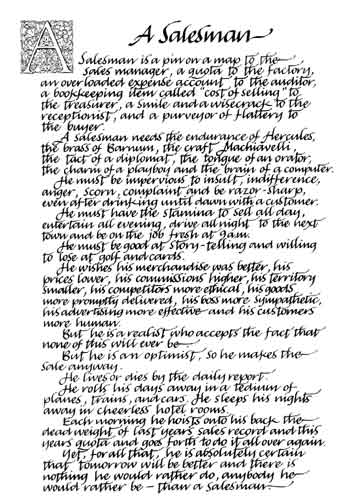 A Salesman
A Salesman is a pin on a map to the
sales manager, a quota to the factory,
an overloaded expense account to the auditor,
a bookkeeping item called "cost of selling" to
the treasurer, a smile and a wisecrack to the
receptionist, and a purveyor of flattery to
the buyer.
A salesman needs the endurance of Hercules,
the brass of Barnum, the craft Machiavelli,
the tact of a diplomat, the tongue of an orator,
the charm of a playboy and the brain of a computer.
He must be impervious to insult, indifference,
anger, scorn, complaint and be razor-sharp,
even after drinking until dawn with a customer.
He must have the stamina to sell all day,
entertain all evening, drive all night to the next
town and be on the job fresh at 9am.
He must be good at story-telling and willing
to lose at golf and cards.
He wishes his merchandise was better, his
prices lower, his commissions higher, his territory
smaller, his competitors more ethical, his goods
more promptly delivered, his boss more sympathetic,
his advertising more effective and his customers
more human.
But he is a realist who accepts the fact that
none of this will ever be
But he is an optimist, so he makes the
sale anyway.
He lives or dies by the daily report.
He rolls his days away in a tedium of
planes, trains, and cars. He sleeps his nights
away in cheerless hotel rooms.
Each morning he hoists onto his back the
dead weight of last years sales record and this
years quota and goes forth to do it all over again.
Yet, for all that, he is absolutely certain
that tomorrow will be better and there is
nothing he would rather do, anybody he
would rather be – than a Salesman